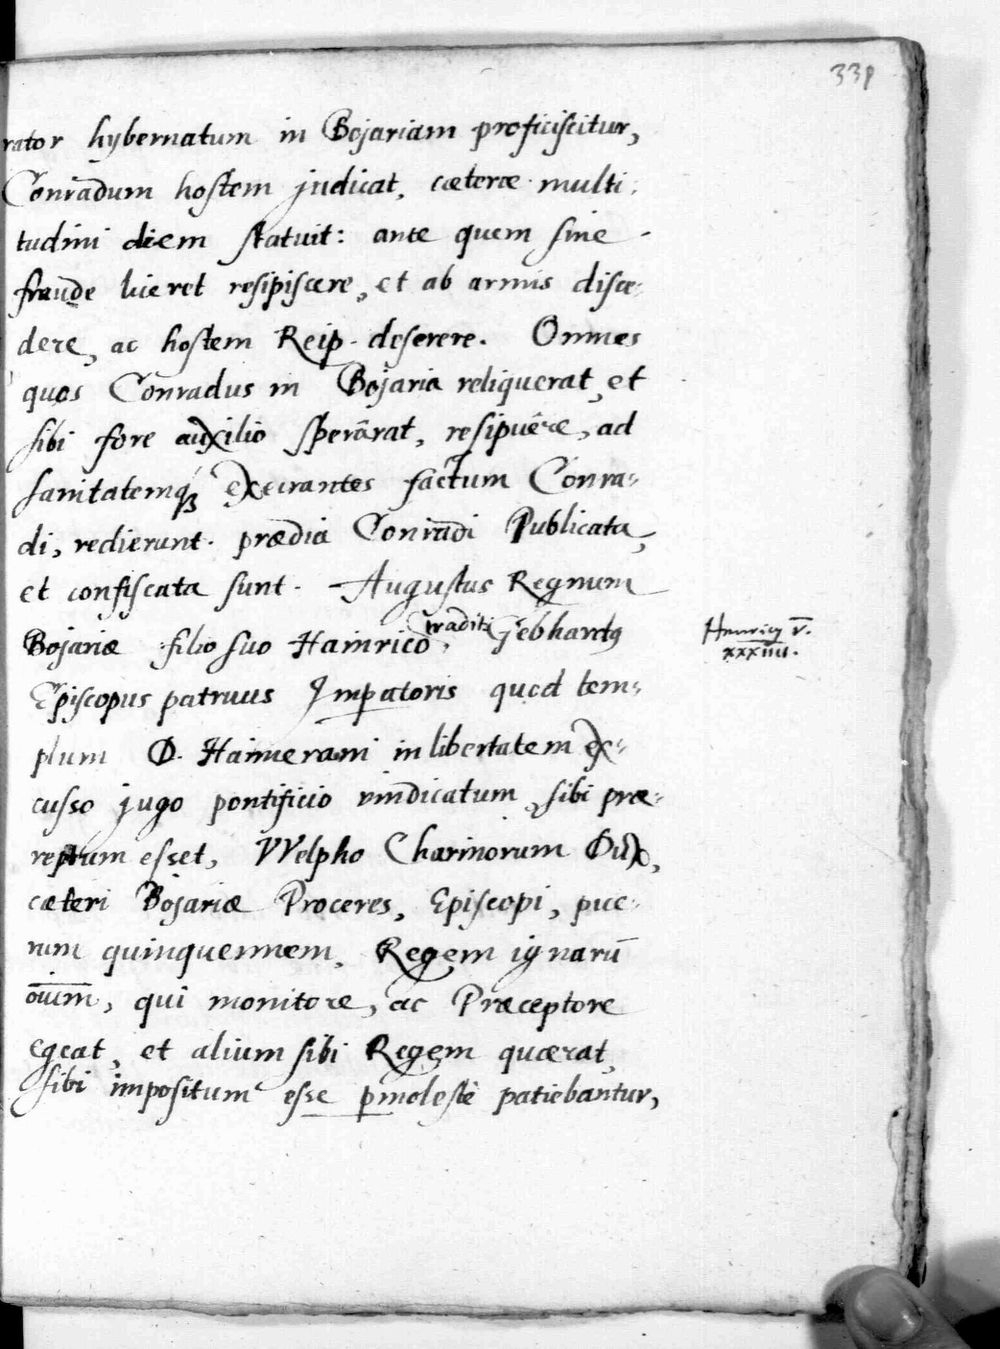 339
rator hybernatum in Bojariam proficiscitur,
Conradum hostem judicat, cæteræ multi-
tudini diem statuit: ante quem sine
fraude liceret resipiscere, et ab armis disce-
dere, ac hostem Reip. deserere. Omnes
quos Conradus in Bojaria reliquerat, et
sibi fore auxilio sperârat, resipuêre, ad
sanitatemq́ꝫ execrantes factum Conra-
di, redierunt. prædia Conradi Publicata,
et confiscata sunt. Augustus Regnum
Bojariæ filio suo Hainrico tradit. Gebhardꝯ
Henricꝯ V.
xxxiiii.
Episcopus patruus Impatoris quod tem-
plum D. Haimerani in libertatem ex-
cusso jugo pontificio vindicatum, sibi præ-
reptum esset, Welpho Charinorum Dux,
cæteri Bojariæ Proceres, Episcopi, pue-
rum quinquennem, Regem ignarū
oīum, qui monitore, ac Præceptore
egeat, et alium sibi Regem quærat,
sibi impositum esse pmolestè patiebantur,